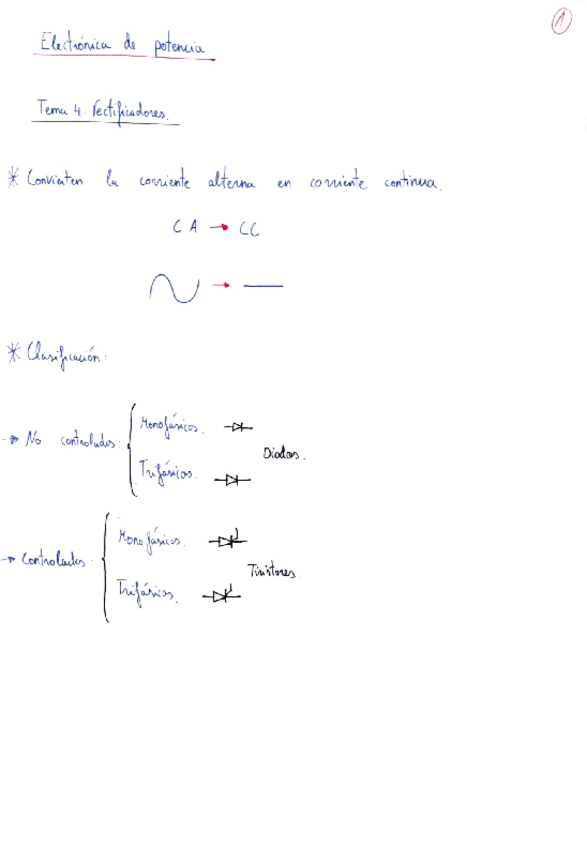 1
Electrónica de potencia
Tema 4. Rectificadores.
* Convierten la corriente alterna en corriente continua.
CA → CC
* Clasificación:
→ No controlados:
Monofásicos.
Trifásicos.
Diodos.
→ Controlados:
Monofásicos.
Trifásicos.
Tiristores.